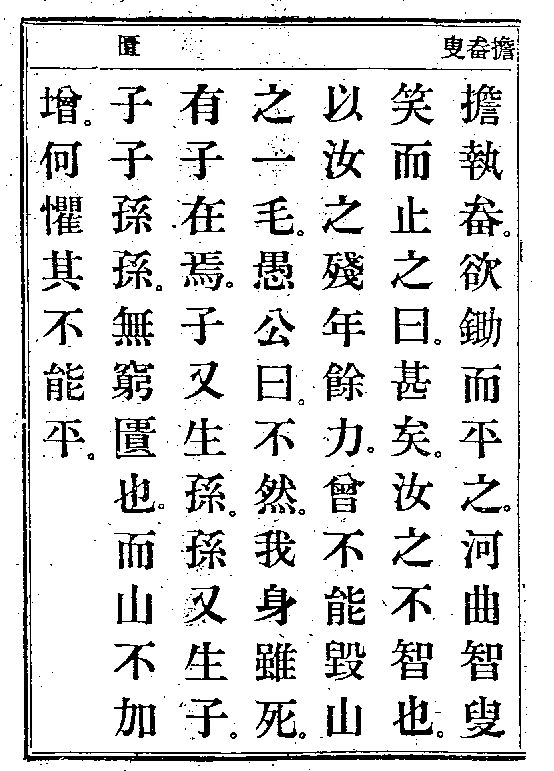 擔畚叟
匱
擔執畚。欲鋤而平之。河曲智叟
笑而止之曰。甚矣。汝之不智也。
以汝之殘年餘力。曾不能毀山
之一毛。愚公曰。不然。我身雖死。
有子在焉。子又生孫。孫又生子。
子子孫孫。無窮匱也。而山不加
增。何懼其不能平。